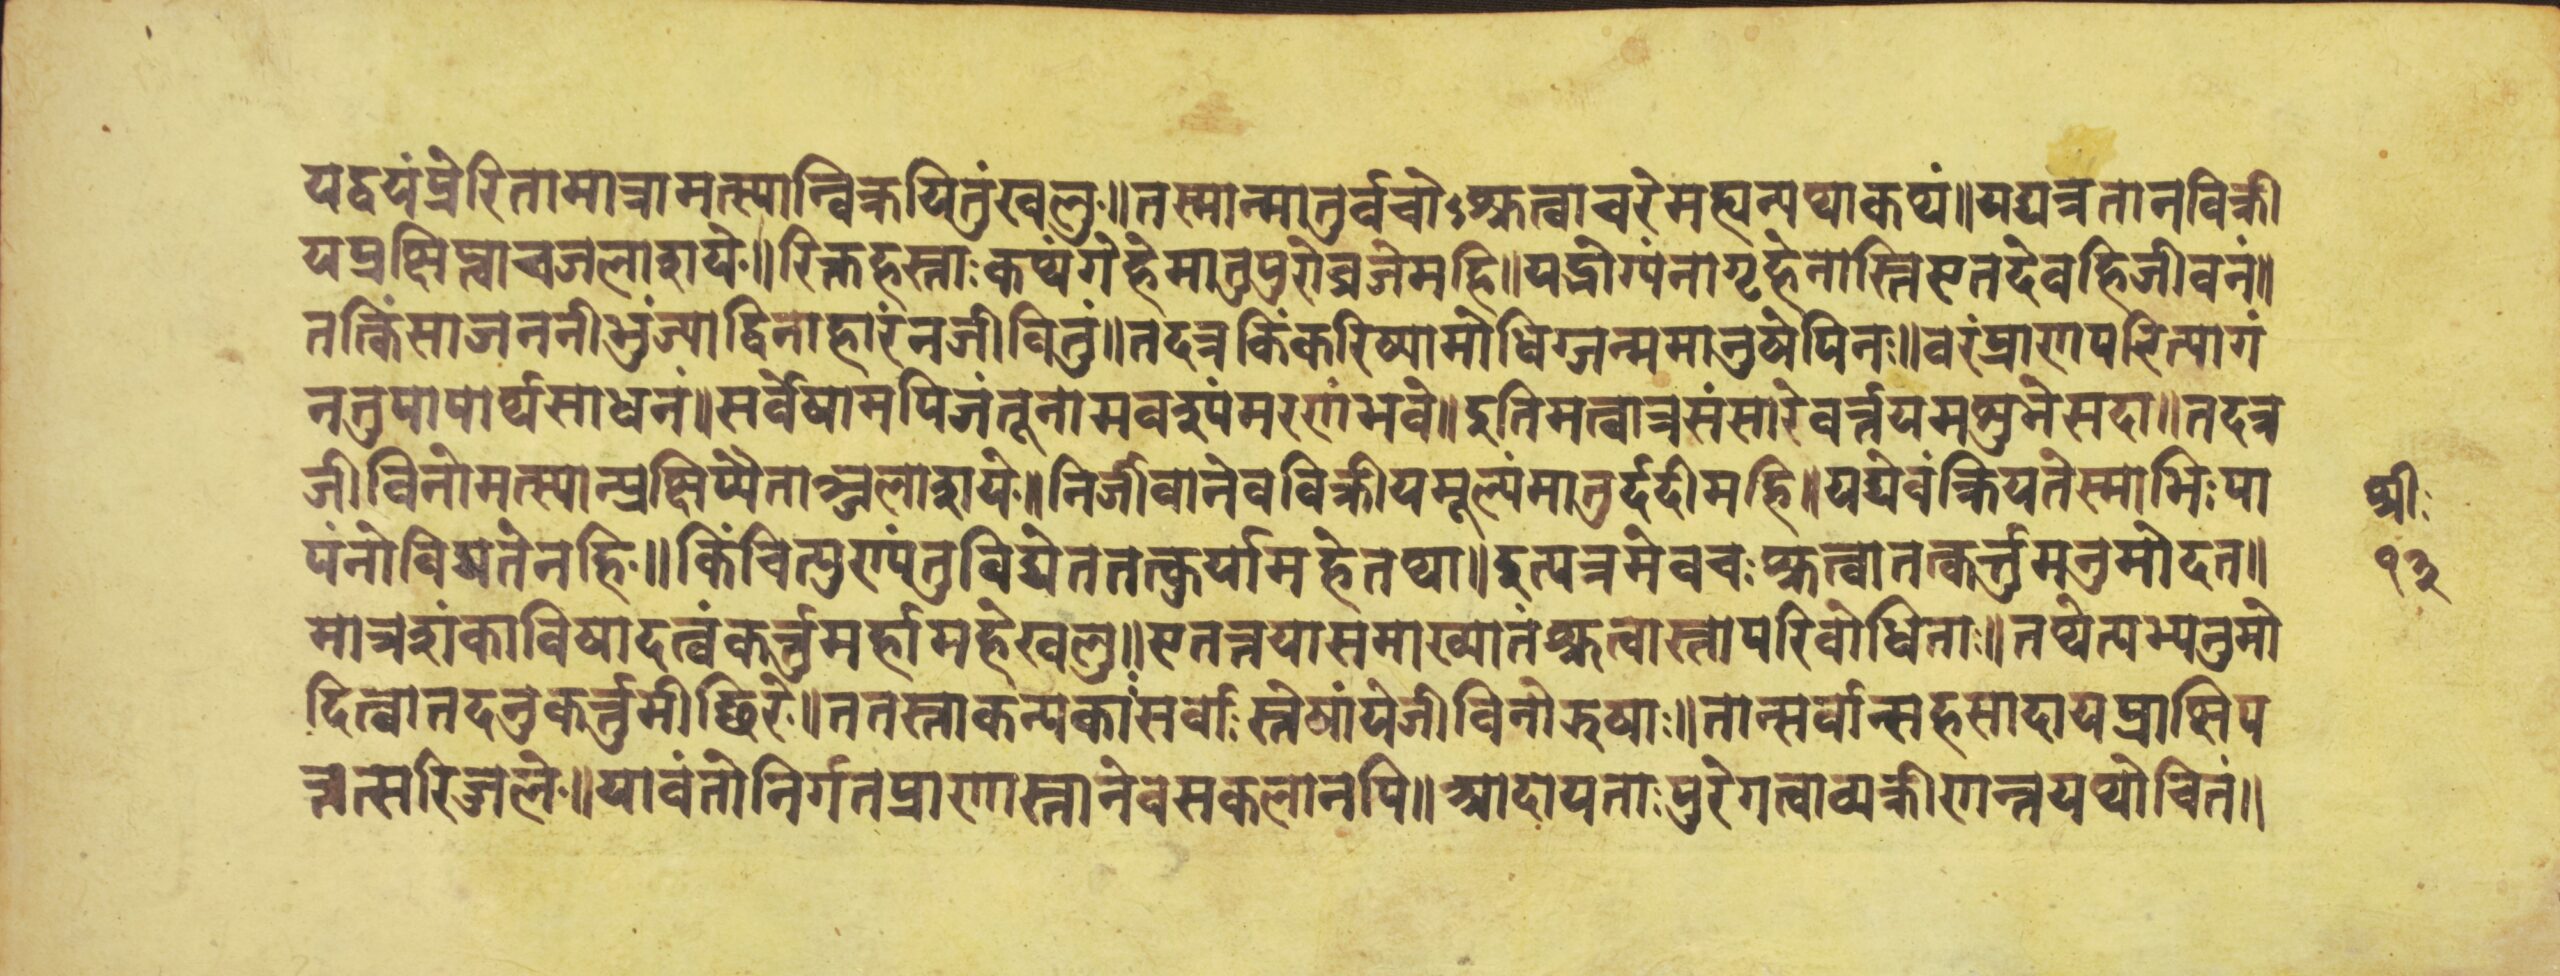 यद्वयंप्रेरितामात्रामत्स्यान्विक्रयितुंखलु॥तस्मान्मातुर्वचोऽश्रुत्वाचरेमह्यन्यथाकथं॥यद्यत्रतानविक्री
यप्रक्षिप्त्वाचजलाशये॥रिक्तहस्ताःकथंगेहेमातुपुरोव्रजेमहि॥यद्भोग्यंनोगृहेनास्तिएतदेवहिजीवनं॥
तत्किंसाजननीभुंज्याद्विनाहारंनजीवितुं॥तदत्रकिंकरिष्यामोधिग्जन्ममानुषेपिनः॥वरंप्राणपरित्यागं
नतुपापार्थसाधनं॥सर्वेषामपिजंतूनामवश्यंमरणंभवे॥इतिमत्वात्रसंसारेवर्त्तयमशुभेसदा॥तदत्र
जीविनोमत्स्यान्प्रक्षिप्यैताञ्जलाशये॥निर्जीवानेवविक्रीयमूल्यंमातुर्ददीमहि॥यद्येवंक्रियतेस्माभिःपा
पंनोविद्यतेनहि॥किंचित्पुण्यंतुविद्येततत्कुर्यामहेतथा॥इत्यत्रमेवचःश्रुत्वातत्कर्त्तुमनुमोदत॥
मात्रशंकाविषादत्वंकर्त्तुमर्हामहेखलु॥एतत्तयासमाख्यातंश्रुत्वास्तापरिवोधिताः॥तथेत्यभ्यनुमो
दित्वातदनुकर्त्तुमीछिरे॥ततस्ताकन्यकांसर्वाःस्तेषांयेजीविनोझषाः॥तान्सर्वान्सहसादायप्राक्षिप
न्तत्सरिज्जले॥यावंतोनिर्गतप्राणास्तानेवसकलानपि॥आदायताःपुरेगत्वाव्यक्रीणन्तयथोचितं॥
श्रीः
१३